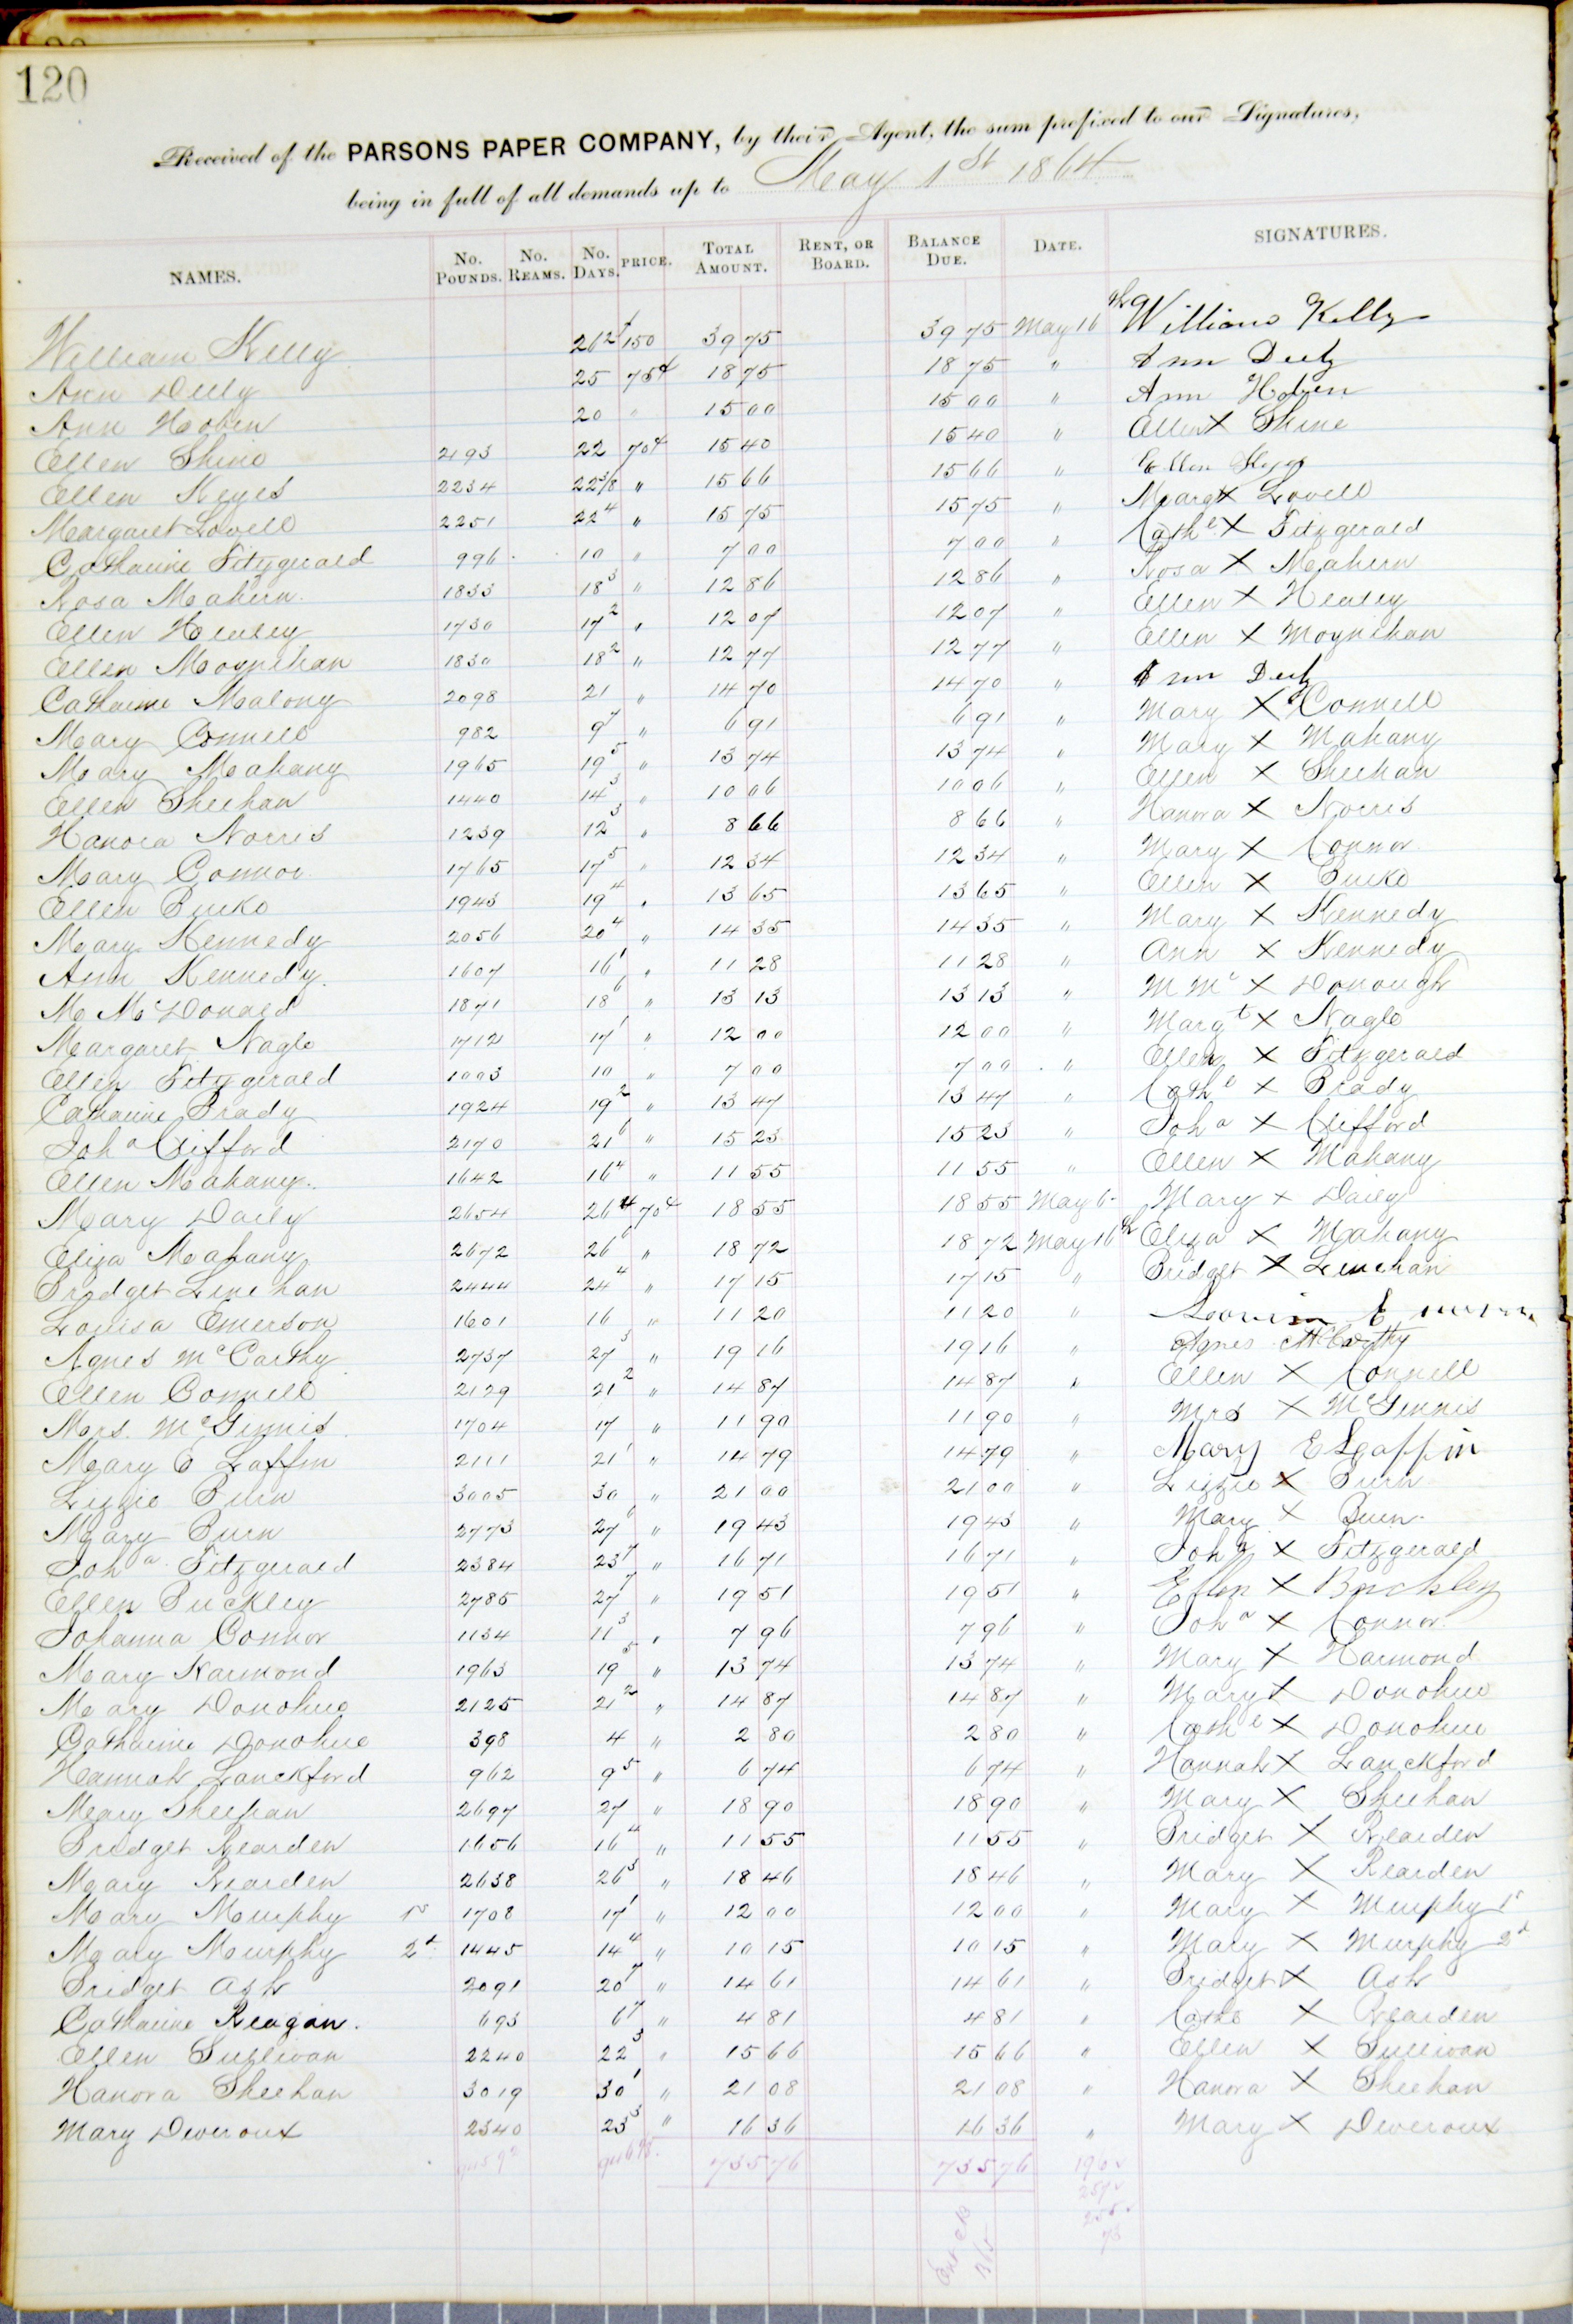 120
Received of the PARSONS PAPER COMPANY, by their Agent, the sum prefixed to our Signatures,
being in full of all demands up to May 1st 1864
NAMES. No. POUNDS. No. REAMS. No. DAYS. PRICE. TOTAL AMOUNT. RENT, OR BOARD. BALANCE DUE. DATE. SIGNATURES.
William Kelly 26 150 39 75 39 75 May 16th William Kelly
Ann Deely 25 75¢ 18 75 18 75 " Ann Deely
Ann Hoben 20 " 15 00 15 00 " Ann Hoben
Ellen Shine 2193 22 70¢ 15 40 15 40 " Ellen X Shine
Ellen Keyes 2234 22 3/8 " 15 66 15 66 " Ellen Keyes
Margaret Lovell 2251 22 4 " 15 75 15 75 " Margt X Lovell
Catharine Fitzgerald 996 10 " 7 00 7 00 " Cathe X Fitzgerald
Rosa Mahern 1833 18 3 " 12 86 12 86 " Rosa X Mahern
Ellen Healey 1730 17 2 " 12 07 12 07 " Ellen X Healey
Ellen Moynihan 1830 18 2 " 12 77 12 77 " Ellen X Moynihan
Catharine Malony 2098 21 " 14 70 14 70 " Ann Deely
Mary Connell 982 9 7 " 6 91 6 91 " Mary X Connell
Mary Mahany 1965 19 5 " 13 74 13 74 " Mary X Mahany
Ellen Sheehan 1440 14 3 " 10 06 10 06 " Ellen X Sheehan
Hanora Norris 1239 12 3 " 8 66 8 66 " Hanora X Norris
Mary Connor 1765 17 5 " 12 34 12 34 " Mary X Connor
Ellen Burke 1943 19 4 " 13 65 13 65 " Ellen X Burke
Mary Kennedy 2056 20 4 " 14 35 14 35 " Mary X Kennedy
Ann Kennedy 1607 16 1 " 11 28 11 28 " Ann X Kennedy
M McDonald 1871 18 6 " 13 13 13 13 " M Mc X Donough
Margaret Nagle 1712 17 1 " 12 00 12 00 " Margt X Nagle
Ellen Fitzgerald 1003 10 " 7 00 7 00 " Ellen X Fitzgerald
Catharine Brady 1924 19 2 " 13 47 13 47 " Cathe X Brady
Joha Clifford 2170 21 6 " 15 23 15 23 " Joha X Clifford
Ellen Mahany 1642 16 4 " 11 55 11 55 " Ellen X Mahany
Mary Daily 2654 26 4 70¢ 18 55 18 55 May 6 Mary X Daily
Eliza Mahany 2672 26 6 " 18 72 18 72 May 16th Eliza X Mahany
Bridget Linehan 2444 24 4 " 17 15 17 15 " Bridget X Linehan
Louisa Emerson 1601 16 " 11 20 11 20 " Louisa Emerson
Agnes McCarthy 2737 27 3 " 19 16 19 16 " Agnes McCarthy
Ellen Connell 2129 21 2 " 14 87 14 87 " Ellen X Connell
Mrs. McGinnis 1704 17 " 11 90 11 90 " Mrs X McGinnis
Mary E Laffin 2111 21 1 " 14 79 14 79 " Mary E Laffin
Lizzie Burn 3005 30 " 21 00 21 00 " Lizzie X Burn
Mary Burn 2773 27 6 " 19 43 19 43 " Mary X Burn
Joha Fitzgerald 2384 23 7 " 16 71 16 71 " Joha X Fitzgerald
Ellen Buckley 2785 27 7 " 19 51 19 51 " Ellen X Buckley
Johanna Connor 1134 11 3 " 7 96 7 96 " Joha X Connor
Mary Harmond 1963 19 5 " 13 74 13 74 " Mary X Harmond
Mary Donohue 2125 21 2 " 14 87 14 87 " Mary X Donohue
Catharine Donohue 398 4 " 2 80 2 80 " Cathe X Donohue
Hannah Lanckford 962 9 5 " 6 74 6 74 " Hannah X Lanckford
Mary Sheehan 2697 27 " 18 90 18 90 " Mary X Sheehan
Bridget Rearden 1656 16 4 " 11 55 11 55 " Bridget X Rearden
Mary Rearden 2638 26 3 " 18 46 18 46 " Mary X Rearden
Mary Murphy 1s 1708 17 1 " 12 00 12 00 " Mary X Murphy 1s
Mary Murphy 2d 1445 14 4 " 10 15 10 15 " Mary X Murphy 2d
Bridget Ash 2091 20 7 " 14 61 14 61 " Bridget X Ash
Catharine Reagan. 693 6 7 " 4 81 4 81 " Cathe X Rearden
Ellen Sullivan 2240 22 3 " 15 66 15 66 " Ellen X Sullivan
Hanora Sheehan 3019 30 1 " 21 08 21 08 " Hanora X Sheehan
Mary Deveroux 2340 23 3 " 16 36 16 36 " Mary X Deveroux
735 76 735 76 190